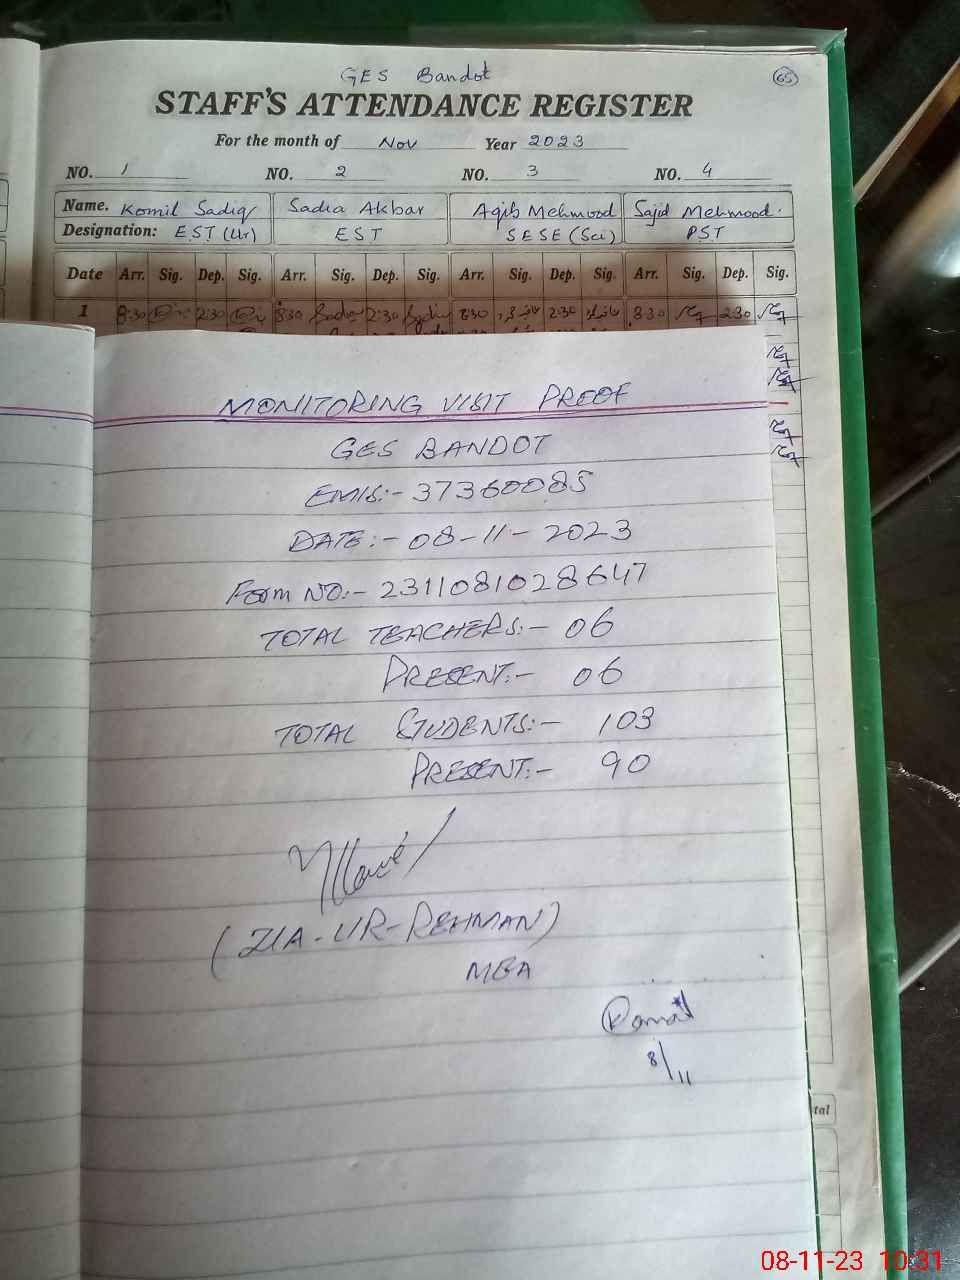 GES Bandot
65
STAFF'S ATTENDANCE REGISTER
For the month of Nov Year 2023
NO. 1 NO. 2 NO. 3 NO. 4
Name. Komil Sadiq Sadia Akbar Aqib Mehmood Sajid Mehmood.
Designation: EST (Ur) EST SESE (Sci) PST
Date Arr. Sig. Dep. Sig. Arr. Sig. Dep. Sig. Arr. Sig. Dep. Sig. Arr. Sig. Dep. Sig.
1 8:30 2:30 8:30 Sadia 2:30 Sadia 8:30 2:30 8:30 2:30
MONITORING VISIT PROOF
GES BANDOT
EMIS:- 37360085
DATE:- 08-11-2023
Form NO:- 2311081028647
TOTAL TEACHERS:- 06
PRESENT:- 06
TOTAL STUDENTS:- 103
PRESENT:- 90
(ZIA-UR-REHMAN)
MEA
8/11
tal
08-11-23 10:31